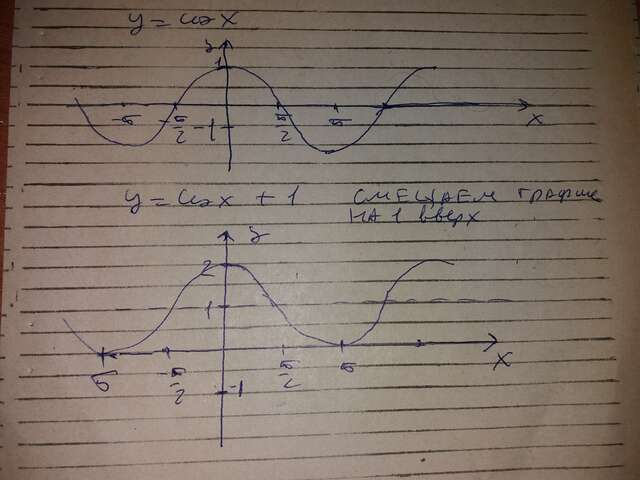 y = cos x
y
1
-π -π/2 -1 π/2 π x
y = cos x + 1 СМЕЩАЕМ ГРАФИК
НА 1 ВВЕРХ
y
2
1
π -π/2 π/2 π x
-1